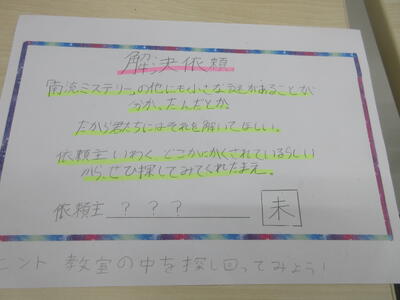 解決依頼
「南流ミステリー」の他にも小さな謎があることが
分かったんだとか
だから君たちにはそれを解いてほしい。
依頼主いわく、どこかにかくされているらしい
から、ぜひ探してみてくれたまえ。
依頼主 ? ? ? 未
ヒント 教室の中を探し回ってみよう!